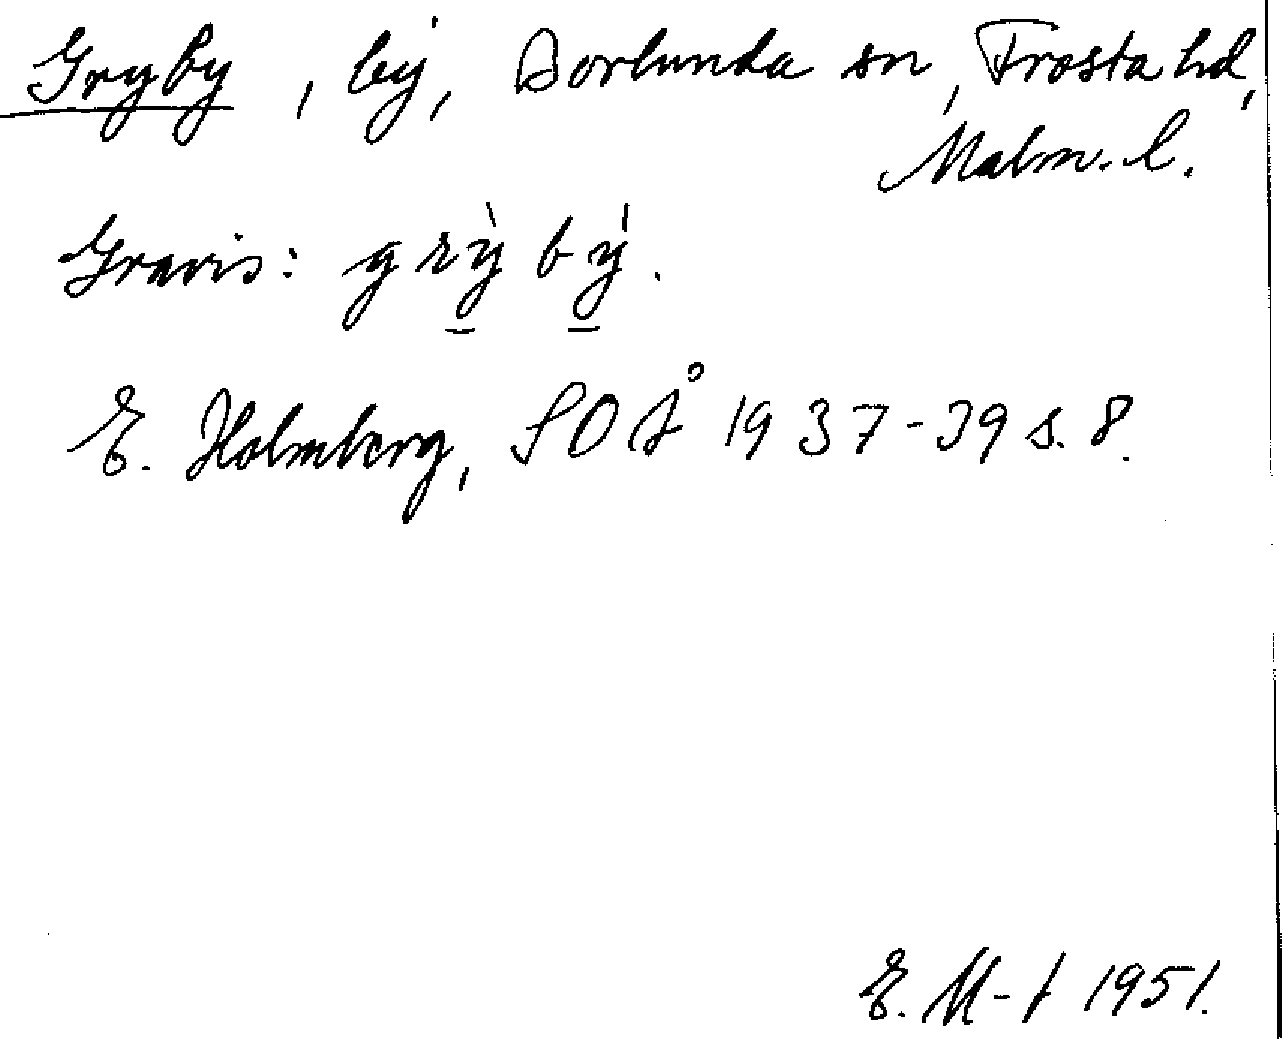 Gryby, by, Borlunda sn, Frosta hd,
Malm. l.
Gravis: grỳbý.
E. Holmberg, SOÅ 1937-39 s. 8.
E. M-t 1951.